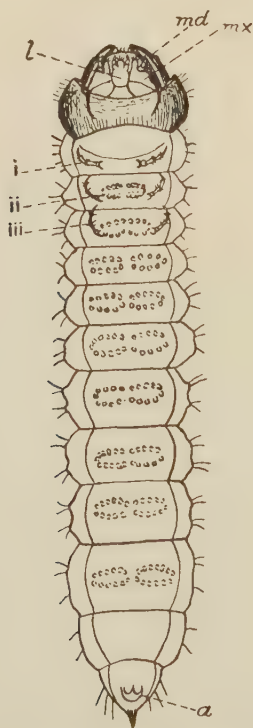 md
l
mx
i
ii
iii
a